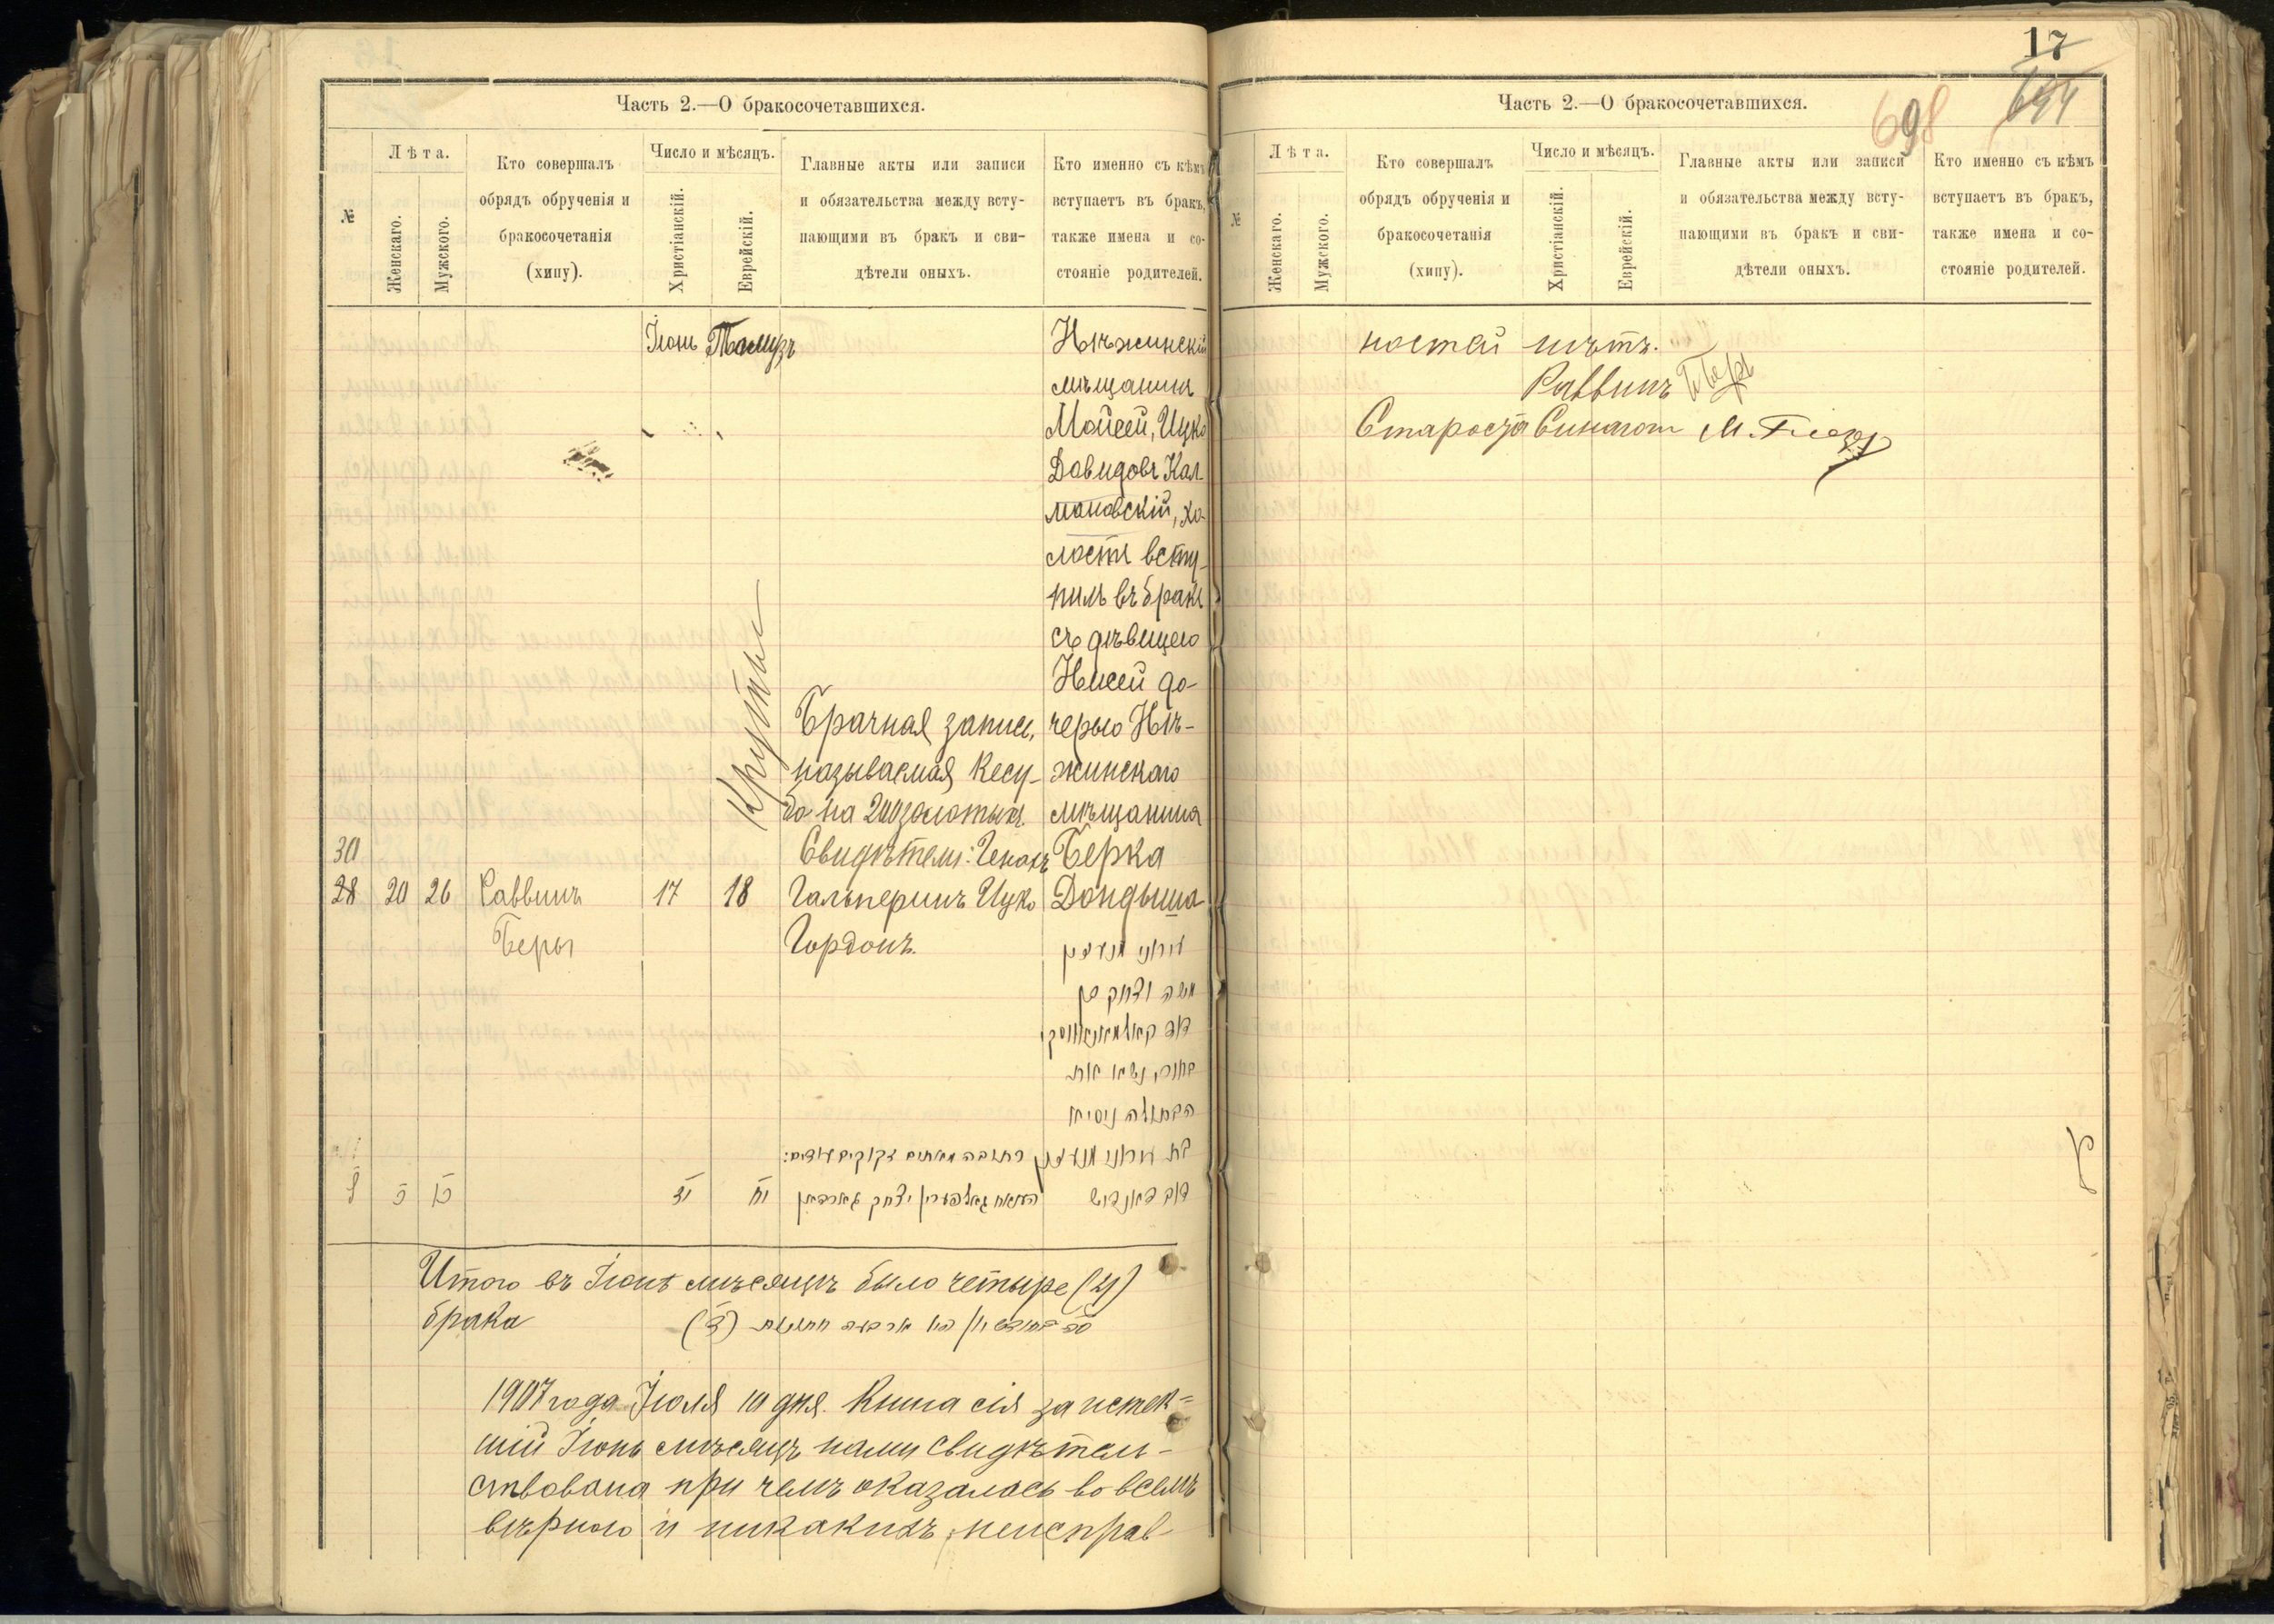 Часть 2.—О бракосочетавшихся.
№
Лѣта.
Женскаго.
Мужского.
Кто совершалъ
обрядъ обрученія и
бракосочетанія
(хипу).
Число и мѣсяцъ.
Христіанскій.
Еврейскій.
Главные акты или записи
и обязательства между всту-
пающими въ бракъ и сви-
дѣтели оныхъ.
Кто именно съ кѣмъ
вступаетъ въ бракъ,
также имена и со-
стояніе родителей.
Іюнь Тамузъ
Нѣжинскій
мѣщанинъ
Мойсей, Ицко
Давидовъ Кал-
мановскій, хо-
лостъ всту-
пилъ въ бракъ
съ дѣвицею
Нисей до-
черью Нѣ-
жинскаго
мѣщанина
Берка
Дондыша
Брачная запись,
называемая Кесу-
ба на 200 золотыхъ.
Свидѣтели:
Гальперинъ Ицко
Гордонъ.
30
28 20 26 Раввинъ 17 18
Беры
משה יצחק בן
דוד קאלמאנאווסקי
בחור, נשא את
הבתולה ניסיא
כתובה מאתים זקוקים עדים:
יצחק גארדאן
דוב דאנדיש
Итого въ Іюнѣ мѣсяцѣ было четыре (4)
брака
1907 года Іюля 10 дня. Книга сія за истек=
шій Іюнь мѣсяцъ нами свидѣтель-
ствована при чемъ оказалось во всемъ
вѣрною и никакихъ неисправ-
17
698
Часть 2.—О бракосочетавшихся.
№
Лѣта.
Женскаго.
Мужского.
Кто совершалъ
обрядъ обрученія и
бракосочетанія
(хипу).
Число и мѣсяцъ.
Христіанскій.
Еврейскій.
Главные акты или записи
и обязательства между всту-
пающими въ бракъ и сви-
дѣтели оныхъ.
Кто именно съ кѣмъ
вступаетъ въ бракъ,
также имена и со-
стояніе родителей.
ностей нѣтъ.
Раввинъ
Староста Синагоги М.